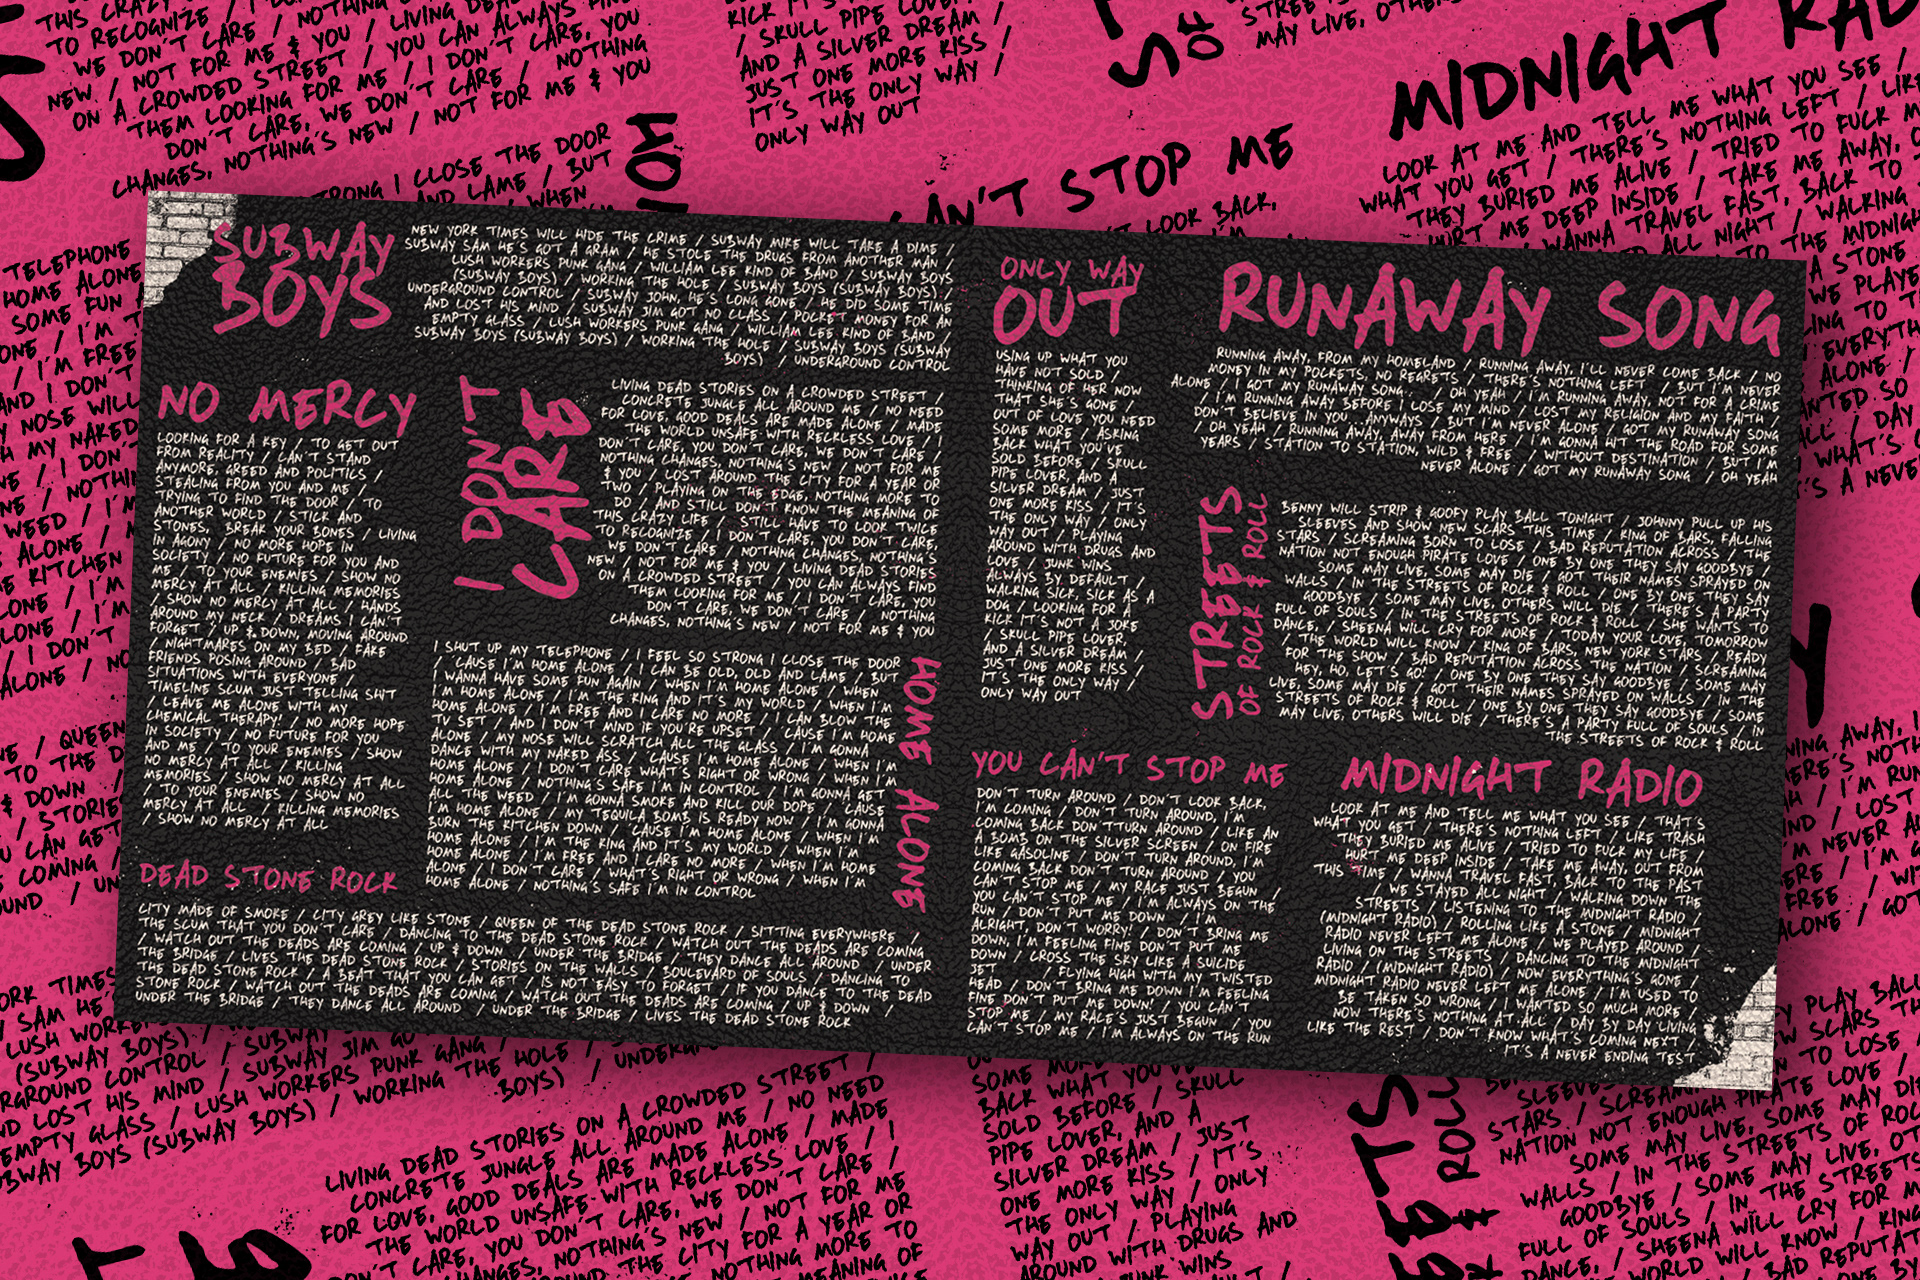 SUBWAY
BOYS
NEW YORK TIMES WILL HIDE THE CRIME / SUBWAY MIKE WILL TAKE A DIME /
SUBWAY SAM HE'S GOT A GRAM / HE STOLE THE DRUGS FROM ANOTHER MAN /
LUSH WORKERS PUNK GANG / WILLIAM LEE KIND OF BAND / SUBWAY BOYS
(SUBWAY BOYS) / WORKING THE HOLE / SUBWAY BOYS (SUBWAY BOYS) /
UNDERGROUND CONTROL / SUBWAY JOHN, HE'S LONG GONE / HE DID SOME TIME
AND LOST HIS MIND / SUBWAY JIM GOT NO CLASS / POCKET MONEY FOR AN
EMPTY GLASS / LUSH WORKERS PUNK GANG / WILLIAM LEE KIND OF BAND /
SUBWAY BOYS (SUBWAY BOYS) / WORKING THE HOLE / SUBWAY BOYS (SUBWAY
BOYS) / UNDERGROUND CONTROL
NO MERCY
LOOKING FOR A KEY / TO GET OUT
FROM REALITY / CAN'T STAND
ANYMORE, GREED AND POLITICS /
STEALING FROM YOU AND ME /
TRYING TO FIND THE DOOR / TO
ANOTHER WORLD / STICK AND
STONES, BREAK YOUR BONES / LIVING
IN AGONY / NO MORE HOPE IN
SOCIETY / NO FUTURE FOR YOU AND
ME / TO YOUR ENEMIES / SHOW NO
MERCY AT ALL / KILLING MEMORIES
/ SHOW NO MERCY AT ALL / HANDS
AROUND MY NECK / DREAMS I CAN'T
FORGET / UP & DOWN, MOVING AROUND
/ NIGHTMARES ON MY BED / FAKE
FRIENDS POSING AROUND / BAD
SITUATIONS WITH EVERYONE /
TIMELINE SCUM JUST TELLING SHIT
/ LEAVE ME ALONE WITH MY
CHEMICAL THERAPY! / NO MORE HOPE
IN SOCIETY / NO FUTURE FOR YOU
AND ME / TO YOUR ENEMIES / SHOW
NO MERCY AT ALL / KILLING
MEMORIES / SHOW NO MERCY AT ALL
/ TO YOUR ENEMIES / SHOW NO
MERCY AT ALL / KILLING MEMORIES
/ SHOW NO MERCY AT ALL
I DON'T
CARE
LIVING DEAD STORIES ON A CROWDED STREET /
CONCRETE JUNGLE ALL AROUND ME / NO NEED
FOR LOVE, GOOD DEALS ARE MADE ALONE / MADE
THE WORLD UNSAFE WITH RECKLESS LOVE / I
DON'T CARE, YOU DON'T CARE, WE DON'T CARE /
NOTHING CHANGES, NOTHING'S NEW / NOT FOR ME
& YOU / LOST AROUND THE CITY FOR A YEAR OR
TWO / PLAYING ON THE EDGE, NOTHING MORE TO
DO / AND STILL DON'T KNOW THE MEANING OF
THIS CRAZY LIFE / STILL HAVE TO LOOK TWICE
TO RECOGNIZE / I DON'T CARE, YOU DON'T CARE,
WE DON'T CARE / NOTHING CHANGES, NOTHING'S
NEW / NOT FOR ME & YOU / LIVING DEAD STORIES
ON A CROWDED STREET / YOU CAN ALWAYS FIND
THEM LOOKING FOR ME / I DON'T CARE, YOU
DON'T CARE, WE DON'T CARE / NOTHING
CHANGES, NOTHING'S NEW / NOT FOR ME & YOU
HOME ALONE
I SHUT UP MY TELEPHONE / I FEEL SO STRONG I CLOSE THE DOOR
/ 'CAUSE I'M HOME ALONE / I CAN BE OLD, OLD AND LAME / BUT
I WANNA HAVE SOME FUN AGAIN / WHEN I'M HOME ALONE / WHEN
I'M HOME ALONE / I'M THE KING AND IT'S MY WORLD / WHEN I'M
HOME ALONE / I'M FREE AND I CARE NO MORE / I CAN BLOW THE
TV SET / AND I DON'T MIND IF YOU'RE UPSET / 'CAUSE I'M HOME
ALONE / MY NOSE WILL SCRATCH ALL THE GLASS / I'M GONNA
DANCE WITH MY NAKED ASS / 'CAUSE I'M HOME ALONE / WHEN I'M
HOME ALONE / I DON'T CARE WHAT'S RIGHT OR WRONG / WHEN I'M
HOME ALONE / NOTHING'S SAFE I'M IN CONTROL / I'M GONNA GET
ALL THE WEED / I'M GONNA SMOKE AND KILL OUR DOPE / 'CAUSE
I'M HOME ALONE / MY TEQUILA BOMB IS READY NOW / I'M GONNA
BURN THE KITCHEN DOWN / 'CAUSE I'M HOME ALONE / WHEN I'M
HOME ALONE / I'M THE KING AND IT'S MY WORLD / WHEN I'M
HOME ALONE / I'M FREE AND I CARE NO MORE / WHEN I'M HOME
ALONE / I DON'T CARE / WHAT'S RIGHT OR WRONG / WHEN I'M
HOME ALONE / NOTHING'S SAFE I'M IN CONTROL
DEAD STONE ROCK
CITY MADE OF SMOKE / CITY GREY LIKE STONE / QUEEN OF THE DEAD STONE ROCK / SITTING EVERYWHERE /
THE SCUM THAT YOU DON'T CARE / DANCING TO THE DEAD STONE ROCK / WATCH OUT THE DEADS ARE COMING
/ WATCH OUT THE DEADS ARE COMING / UP & DOWN / UNDER THE BRIDGE / THEY DANCE ALL AROUND / UNDER
THE BRIDGE / LIVES THE DEAD STONE ROCK / STORIES ON THE WALLS / BOULEVARD OF SOULS / DANCING TO
THE DEAD STONE ROCK / A BEAT THAT YOU CAN GET / IS NOT EASY TO FORGET / IF YOU DANCE TO THE DEAD
STONE ROCK / WATCH OUT THE DEADS ARE COMING / WATCH OUT THE DEADS ARE COMING / UP & DOWN /
UNDER THE BRIDGE / THEY DANCE ALL AROUND / UNDER THE BRIDGE / LIVES THE DEAD STONE ROCK
ONLY WAY
OUT
USING UP WHAT YOU
HAVE NOT SOLD /
THINKING OF HER NOW
THAT SHE'S GONE /
OUT OF LOVE YOU NEED
SOME MORE / ASKING
BACK WHAT YOU'VE
SOLD BEFORE / SKULL
PIPE LOVER, AND A
SILVER DREAM / JUST
ONE MORE KISS / IT'S
THE ONLY WAY / ONLY
WAY OUT / PLAYING
AROUND WITH DRUGS AND
LOVE / JUNK WINS
ALWAYS BY DEFAULT /
WALKING SICK, SICK AS A
DOG / LOOKING FOR A
KICK IT'S NOT A JOKE
/ SKULL PIPE LOVER,
AND A SILVER DREAM /
JUST ONE MORE KISS /
IT'S THE ONLY WAY /
ONLY WAY OUT
RUNAWAY SONG
RUNNING AWAY, FROM MY HOMELAND / RUNNING AWAY, I'LL NEVER COME BACK / NO
MONEY IN MY POCKETS, NO REGRETS / THERE'S NOTHING LEFT / BUT I'M NEVER
ALONE / I GOT MY RUNAWAY SONG / OH YEAH / I'M RUNNING AWAY, NOT FOR A CRIME
/ I'M RUNNING AWAY BEFORE I LOSE MY MIND / LOST MY RELIGION AND MY FAITH /
DON'T BELIEVE IN YOU ANYWAYS / BUT I'M NEVER ALONE / GOT MY RUNAWAY SONG
/ OH YEAH / RUNNING AWAY, AWAY FROM HERE / I'M GONNA HIT THE ROAD FOR SOME
YEARS / STATION TO STATION, WILD & FREE / WITHOUT DESTINATION / BUT I'M
NEVER ALONE / GOT MY RUNAWAY SONG / OH YEAH
STREETS
OF ROCK & ROLL
BENNY WILL STRIP & GOOFY PLAY BALL TONIGHT / JOHNNY PULL UP HIS
SLEEVES AND SHOW NEW SCARS THIS TIME / KING OF BARS, FALLING
STARS / SCREAMING BORN TO LOSE / BAD REPUTATION ACROSS / THE
NATION NOT ENOUGH PIRATE LOVE / ONE BY ONE THEY SAY GOODBYE
SOME MAY LIVE, SOME MAY DIE / GOT THEIR NAMES SPRAYED ON
WALLS / IN THE STREETS OF ROCK & ROLL / ONE BY ONE THEY SAY
GOODBYE / SOME MAY LIVE, OTHERS WILL DIE / THERE'S A PARTY
FULL OF SOULS / IN THE STREETS OF ROCK & ROLL / SHE WANTS TO
DANCE, / SHEENA WILL CRY FOR MORE / TODAY YOUR LOVE, TOMORROW
/ THE WORLD WILL KNOW / KING OF BARS, NEW YORK STARS / READY
FOR THE SHOW / BAD REPUTATION ACROSS THE NATION / SCREAMING
HEY, HO, LET'S GO! / ONE BY ONE THEY SAY GOODBYE / SOME MAY
LIVE, SOME MAY DIE / GOT THEIR NAMES SPRAYED ON WALLS / IN THE
STREETS OF ROCK & ROLL / ONE BY ONE THEY SAY GOODBYE / SOME
MAY LIVE, OTHERS WILL DIE / THERE'S A PARTY FULL OF SOULS / IN
THE STREETS OF ROCK & ROLL
YOU CAN'T STOP ME
DON'T TURN AROUND / DON'T LOOK BACK,
I'M COMING / DON'T TURN AROUND, I'M
COMING BACK DON'TTURN AROUND / LIKE AN
A BOMB ON THE SILVER SCREEN / ON FIRE
LIKE GASOLINE / DON'T TURN AROUND, I'M
COMING BACK DON'T TURN AROUND / YOU
CAN'T STOP ME / MY RACE JUST BEGUN /
YOU CAN'T STOP ME / I'M ALWAYS ON THE
RUN / DON'T PUT ME DOWN / I'M
ALRIGHT, DON'T WORRY! / DON'T BRING ME
DOWN, I'M FEELING FINE DON'T PUT ME
DOWN / CROSS THE SKY LIKE A SUICIDE
JET / FLYING HIGH WITH MY TWISTED
HEAD / DON'T BRING ME DOWN I'M FEELING
FINE DON'T PUT ME DOWN! / YOU CAN'T
STOP ME / MY RACE'S JUST BEGUN / YOU
CAN'T STOP ME / I'M ALWAYS ON THE RUN
MIDNIGHT RADIO
LOOK AT ME AND TELL ME WHAT YOU SEE / THAT'S
WHAT YOU GET / THERE'S NOTHING LEFT / LIKE TRASH
THEY BURIED ME ALIVE / TRIED TO FUCK MY LIFE /
HURT ME DEEP INSIDE / TAKE ME AWAY, OUT FROM
THIS TIME / WANNA TRAVEL FAST, BACK TO THE PAST
/ WE STAYED ALL NIGHT / WALKING DOWN THE
STREETS / LISTENING TO THE MIDNIGHT RADIO /
(MIDNIGHT RADIO) / ROLLING LIKE A STONE / MIDNIGHT
RADIO NEVER LEFT ME ALONE / WE PLAYED AROUND /
LIVING ON THE STREETS / DANCING TO THE MIDNIGHT
RADIO / (MIDNIGHT RADIO) / NOW EVERYTHING'S GONE /
MIDNIGHT RADIO NEVER LEFT ME ALONE / I'M USED TO
BE TAKEN SO WRONG / I WANTED SO MUCH MORE /
NOW THERE'S NOTHING AT ALL / DAY BY DAY LIVING
LIKE THE REST / DON'T KNOW WHAT'S COMING NEXT /
IT'S A NEVER ENDING TEST